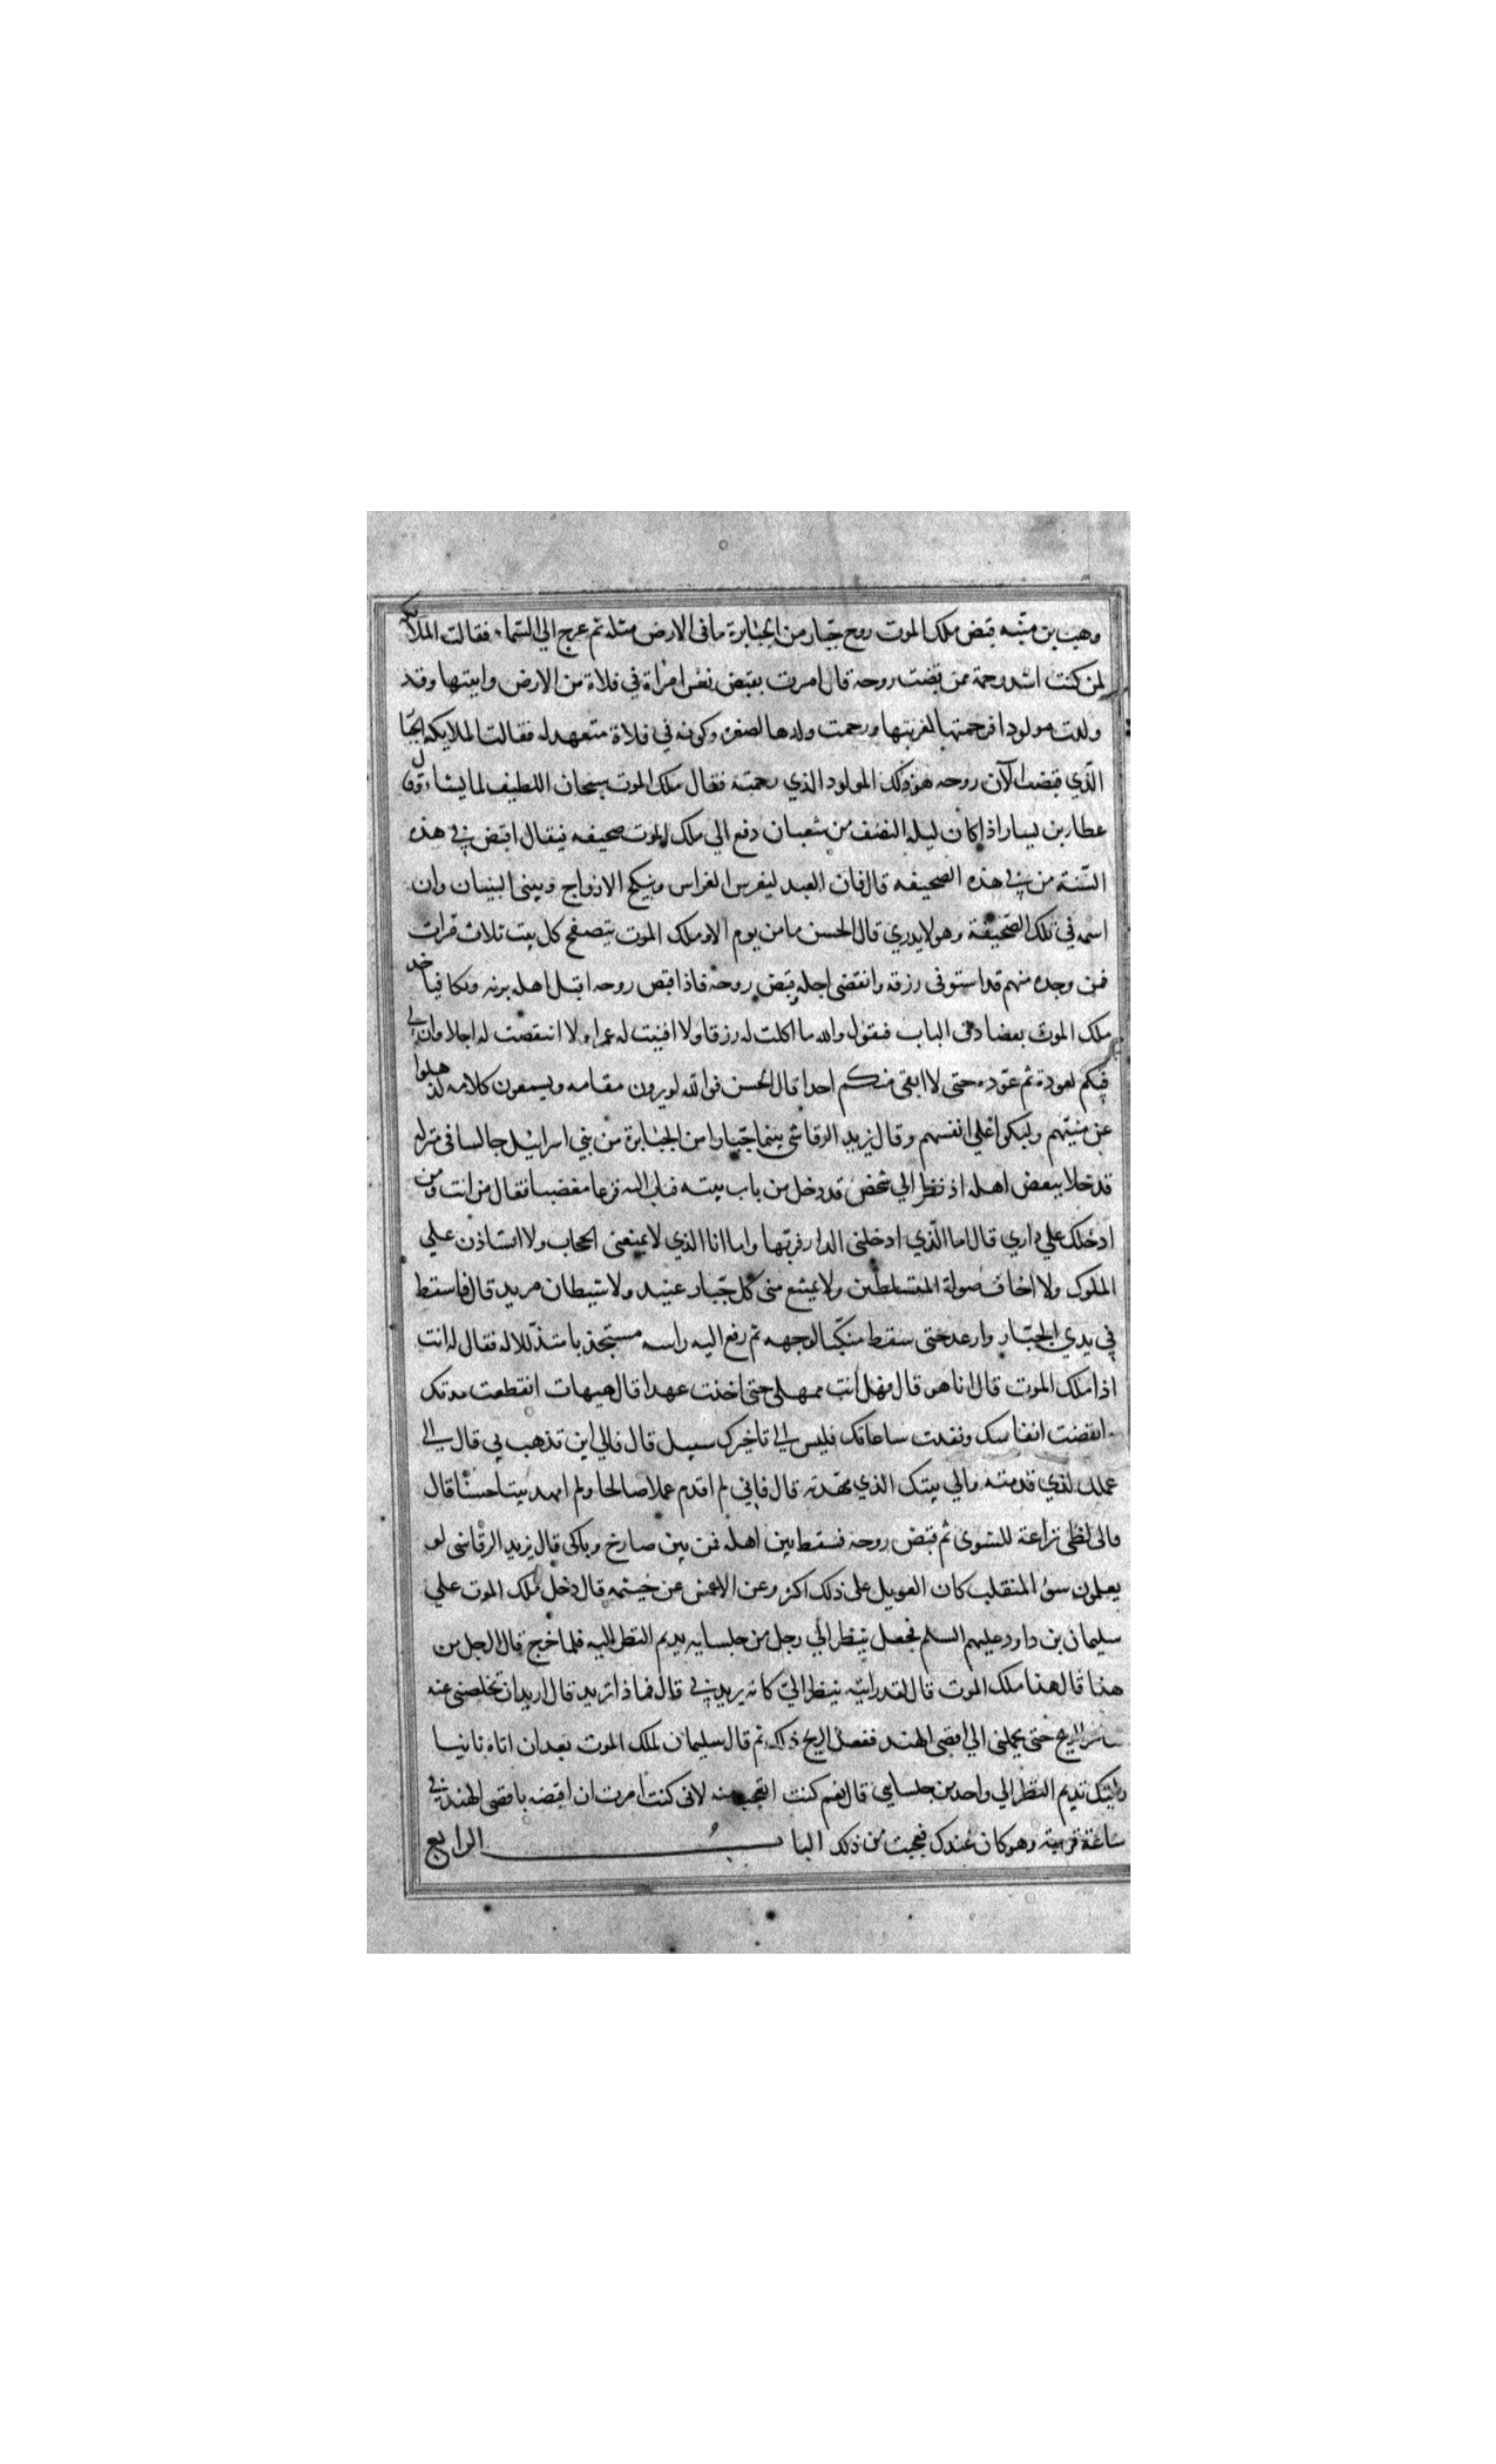 وهب بن منبه قبض ملك الموت روح جبار من الجبابرة ما في الارض مثله ثم عرج الي السماء فقالت الملائكة
لمن كنت اشد رحمة ممن قبضت روحه قال امرت بقبض نفس امراة في فلاة من الارض واتيتها وقد
ولدت مولودا فرحمتها لغربتها ورحمت ولدها لصغره وكونه في فلاة متعهد له فقالت الملايكه الجبار
الذي قبضت الآن روحه هو ذلك المولود الذي رحمته فقال ملك الموت سبحان اللطيف لما يشاء وقال
عطا بن يسار اذا كان ليله النصف من شعبان دفع الي ملك الموت صحيفه فيقال اقبض في هذه
السنة من في هذه الصحيفه قال فان العبد ليغرس الغراس وينكح الازواج ويبني البنيان وان
اسمه في تلك الصحيفة وهو لا يدري قال الحسن ما من يوم الا وملك الموت يتصفح كل بيت ثلاث مرات
فمن وجده منهم قد استوفي رزقه وانقضي اجله قبض روحه فاذا قبض روحه اقبل اهله برنه وبكا فياخذ
ملك الموت بعضادتى الباب فيقول والله ما اكلت له رزقا ولا افنيت له عمرا ولا انتقصت له اجلا وان لي
فيكم لعودة ثم عوده حتى لا ابقي منكم احدا قال الحسن فوالله لو يرون مقامه ويسمعون كلامه لذهلوا
عن ميتهم وليبكوا علي انفسهم وقال يزيد الرقاشي بينما جبارا من الجبابرة من بني اسرائيل جالسا في منزله
قد خلا ببعض اهله اذ نظر الي شخص قد دخل من باب بيته فثار اليه فزعا مغضبا فقال من انت ومن
ادخلك علي داري قال اما الذي ادخلني الدار فربها واما انا الذي لا يمنعني الحجاب ولا استاذن علي
الملوك ولا اخاف صولة المتسلطين ولا يمتنع مني كل جبار عنيد ولا شيطان مريد قال فاسقط
في يدي الجبار وارعد حتى سقط منكبا لوجهه ثم رفع اليه راسه مستجديا متذللا له فقال له انت
اذا ملك الموت قال انا هو قال فهل انت ممهلي حتى احدث عهدا قال هيهات انقطعت مدتك
وانقضت انفاسك ونفدت ساعاتك فليس الي تاخيرك سبيل قال فالي اين تذهب بي قال الي
عملك الذي قدمته والي بيتك الذي مهدته قال فاني لم اقدم عملا صالحا ولم امهد بيتا حسنا قال
فالى لظى نزاعة للشوى ثم قبض روحه فسقط بين اهله فمن بين صارخ وباكي قال يزيد الرقاشي لو
يعلمون سوء المنقلب كان العويل على ذلك اكثر وعن الاعمش عن خيثمه قال دخل ملك الموت علي
سليمان بن داود عليهم السلم فجعل ينظر الي رجل من جلسايه يديم النظر اليه فلما خرج قال الرجل من
هذا قال هذا ملك الموت قال لقد رايته ينظر الي كانه يريدني قال فماذا تريد قال اريد ان تخلصني عنه
الريح حتى يحملني الي اقصى الهند ففعل الريح ذلك ثم قال سليمان لملك الموت بعد ان اتاه ثانيا
رايتك تديم النظر الي واحد من جلساءي قال نعم كنت اتعجب منه لاني كنت امرت ان اقبضه باقصى الهند في
ساعة قريبة وهو كان عندك فعجبت من ذلك الباب الرابع